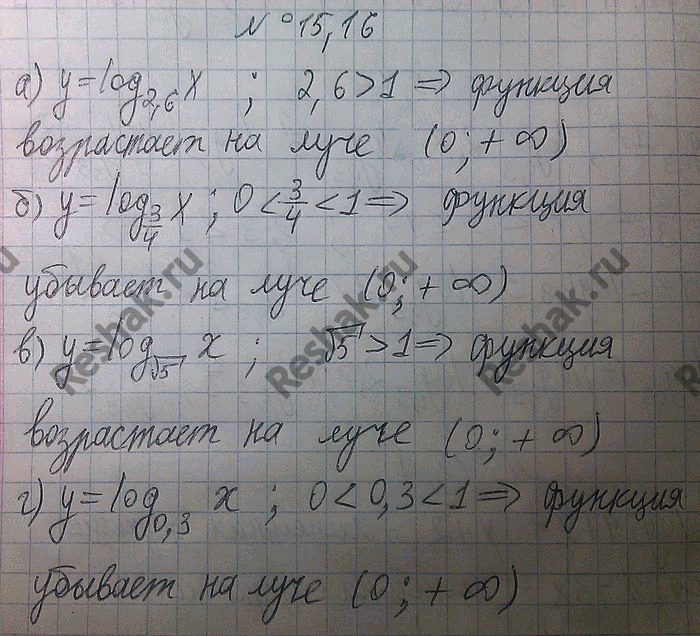 № 15,16
а) y = log_{2,6} x ; 2,6 > 1 ⇒ функция
возрастает на луче (0; + ∞)
б) y = log_{3/4} x ; 0 < 3/4 < 1 ⇒ функция
убывает на луче (0; + ∞)
в) y = log_{√5} x ; √5 > 1 ⇒ функция
возрастает на луче (0; + ∞)
г) y = log_{0,3} x ; 0 < 0,3 < 1 ⇒ функция
убывает на луче (0; + ∞)
Reshak.ru
Reshak.ru
Reshak.ru